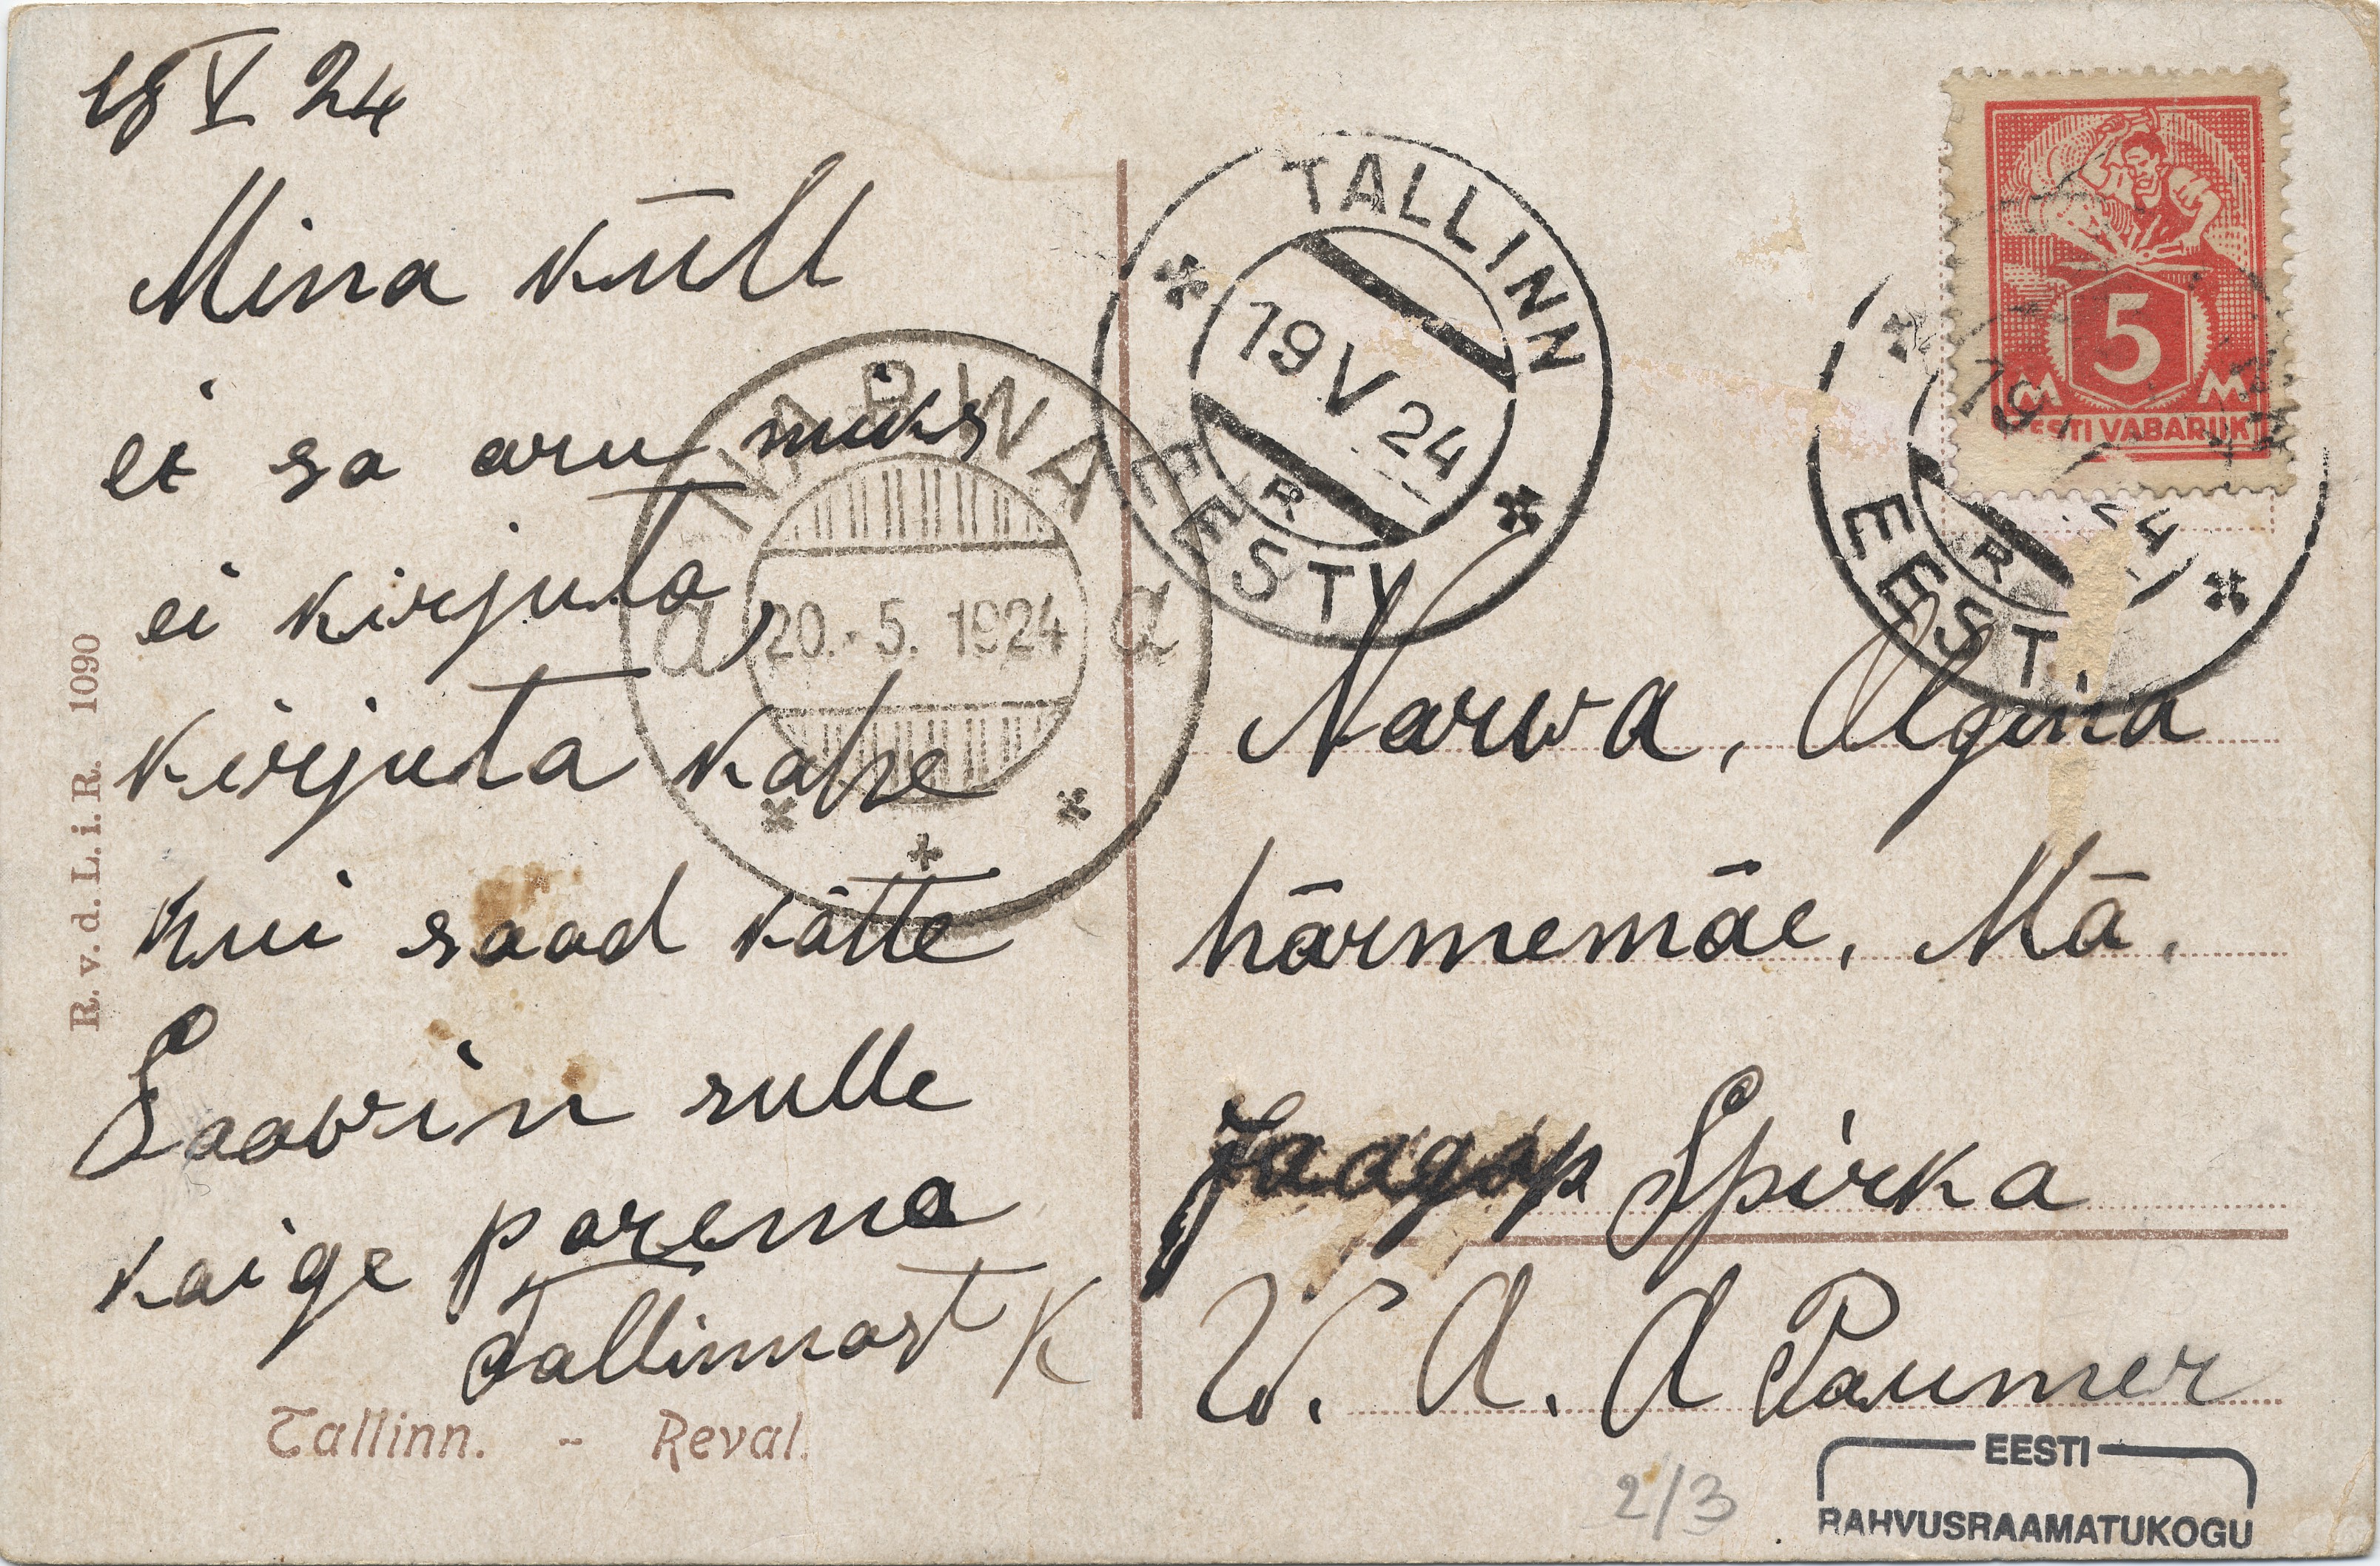 18 V 24
Mina küll
ei sa aru miks
ei kirjuta,
kirjuta kahe
kui saad kätte
Soowin sulle
kaige parema
Tallinnast K
R. v. d. L. i. R. 1090
Tallinn. - Reval.
NARWA
a 20.-5. 1924 a
TALLINN
19 V 24
R
EESTI
5
M M
EESTI VABARIIK
19 V 24
R
EESTI
Narwa, Olgina
härmemäe, Mä.
Jaagop Spirka
W. A. A Paumer
2/3
EESTI
RAHVUSRAAMATUKOGU